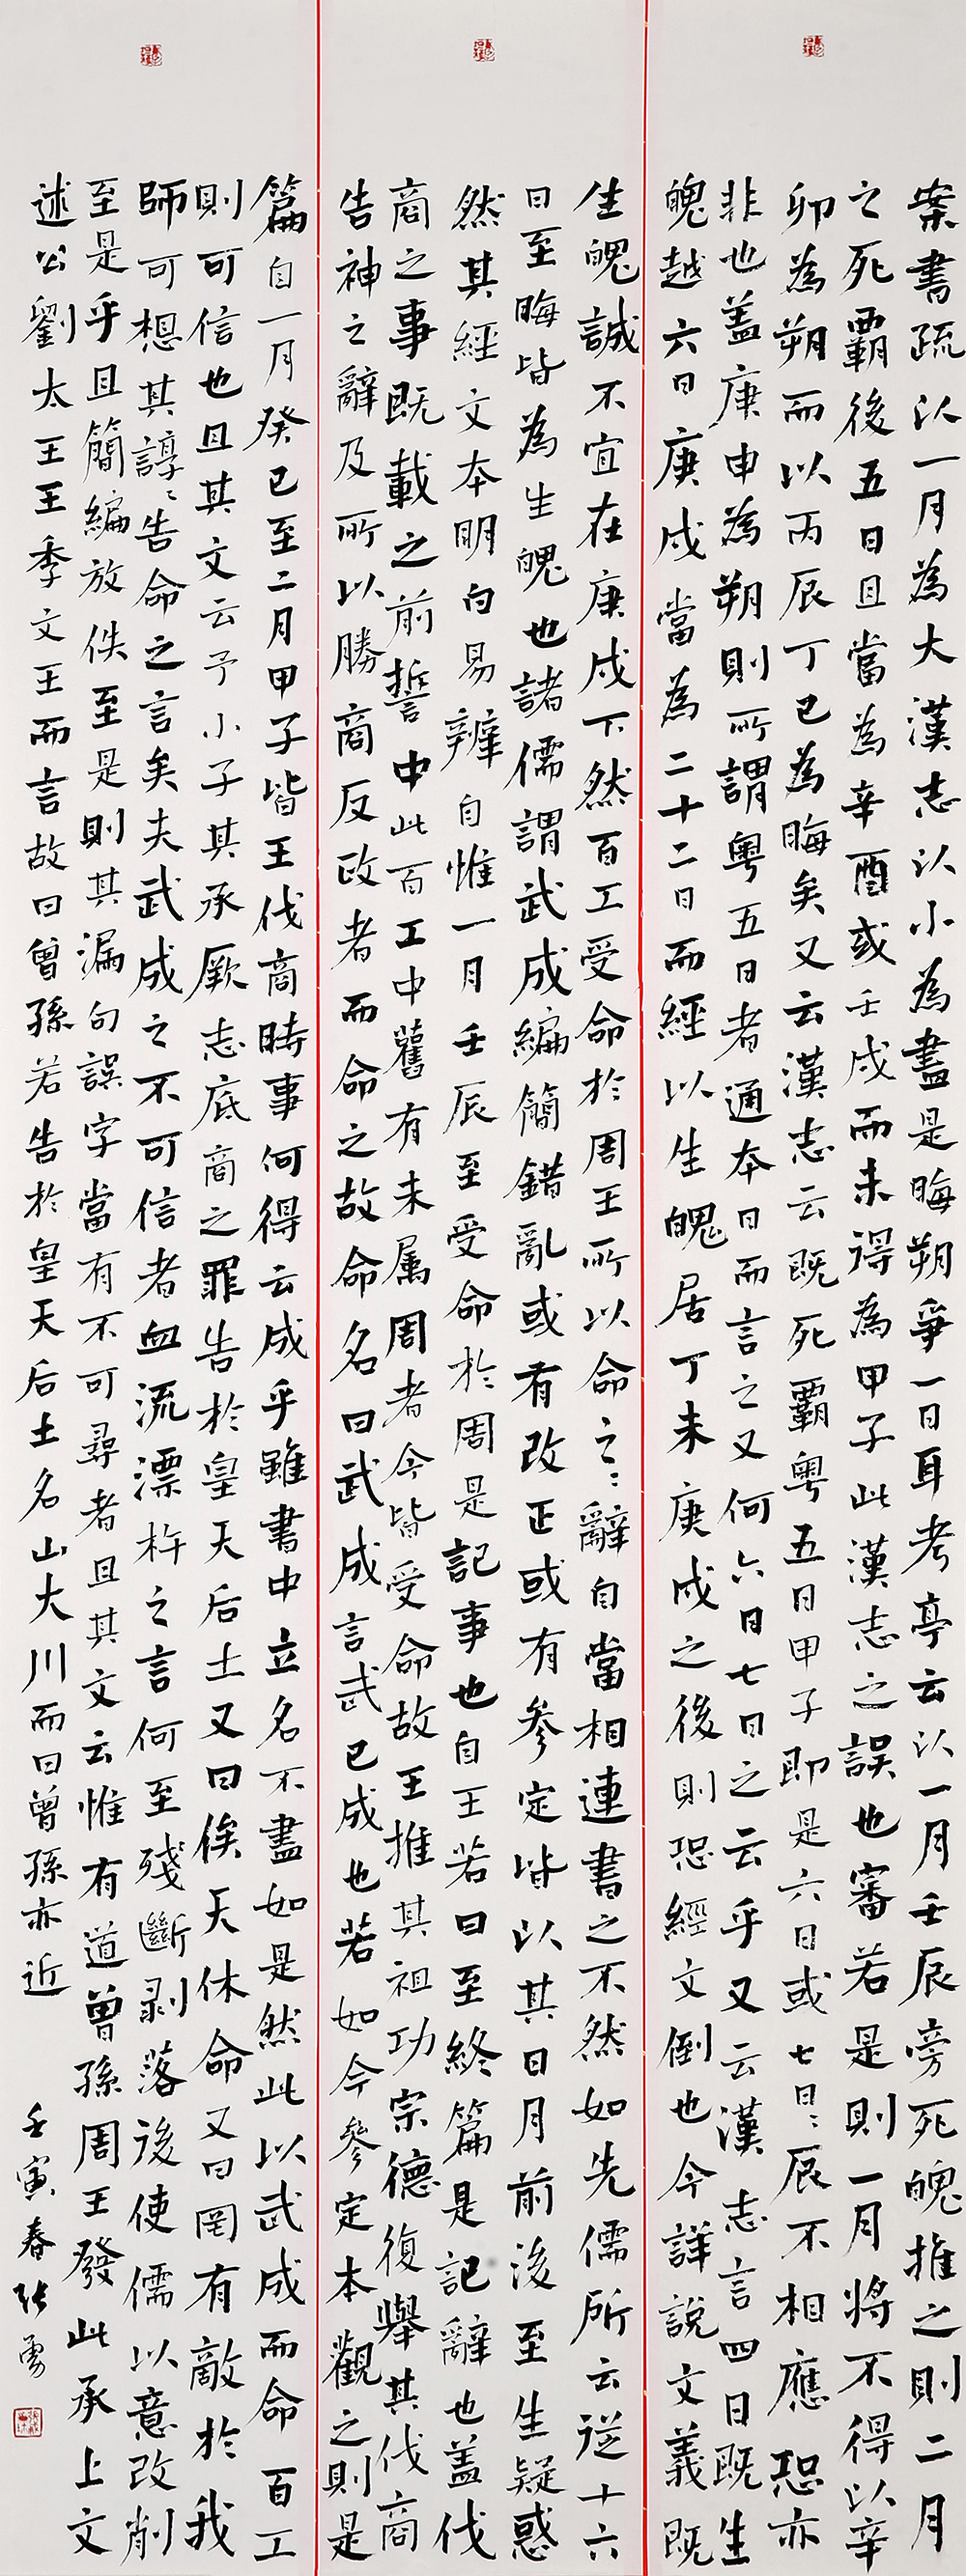 案書疏以一月為大漢志以小為盡是晦朔爭一日耳考亭云以一月壬辰旁死魄推之則二月
之死霸後五日且當為辛酉或壬戌而未得為甲子此漢志之誤也審若是則一月將不得以辛
卯為朔而以丙辰丁巳為晦矣又云漢志云既死霸粵五日甲子即是六日或七日〻辰不相應恐亦
非也盖庚申為朔則所謂粵五日者通本日而言之又何六日七日之云乎又云漢志言四日既生
魄越六日庚戌當為二十二日而經以生魄居丁未庚戌之後則恐經文倒也今詳說文義既
生魄誠不宜在庚戌下然百工受命於周王所以命之〻辭自當相連書之不然如先儒所云從十六
日至晦皆為生魄也諸儒謂武成編簡錯亂或有改正或有參定皆以其日月前後至生疑惑
然其經文本明白易辨自惟一月壬辰至受命於周是記事也自王若曰至終篇是記辭也盖伐
商之事既載之前誓中此百工中舊有未属周者今皆受命故王推其祖功宗德復舉其伐商
告神之辭及所以勝商反政者而命之故命名曰武成言武已成也若如今參定本觀之則是
篇自一月癸巳至二月甲子皆王伐商時事何得云成乎雖書中立名不盡如是然此以武成而命百工
則可信也且其文云予小子其承厥志底商之罪告於皇天后土又曰俟天休命又曰罔有敵於我
師可想其諄〻告命之言矣夫武成之不可信者血流漂杵之言何至殘斷剥落後使儒以意改削
至是乎且簡編放佚至是則其漏句誤字當有不可尋者且其文云惟有道曾孫周王發此承上文
述公劉太王王季文王而言故曰曾孫若告於皇天后土名山大川而曰曾孫亦近
壬寅春張勇